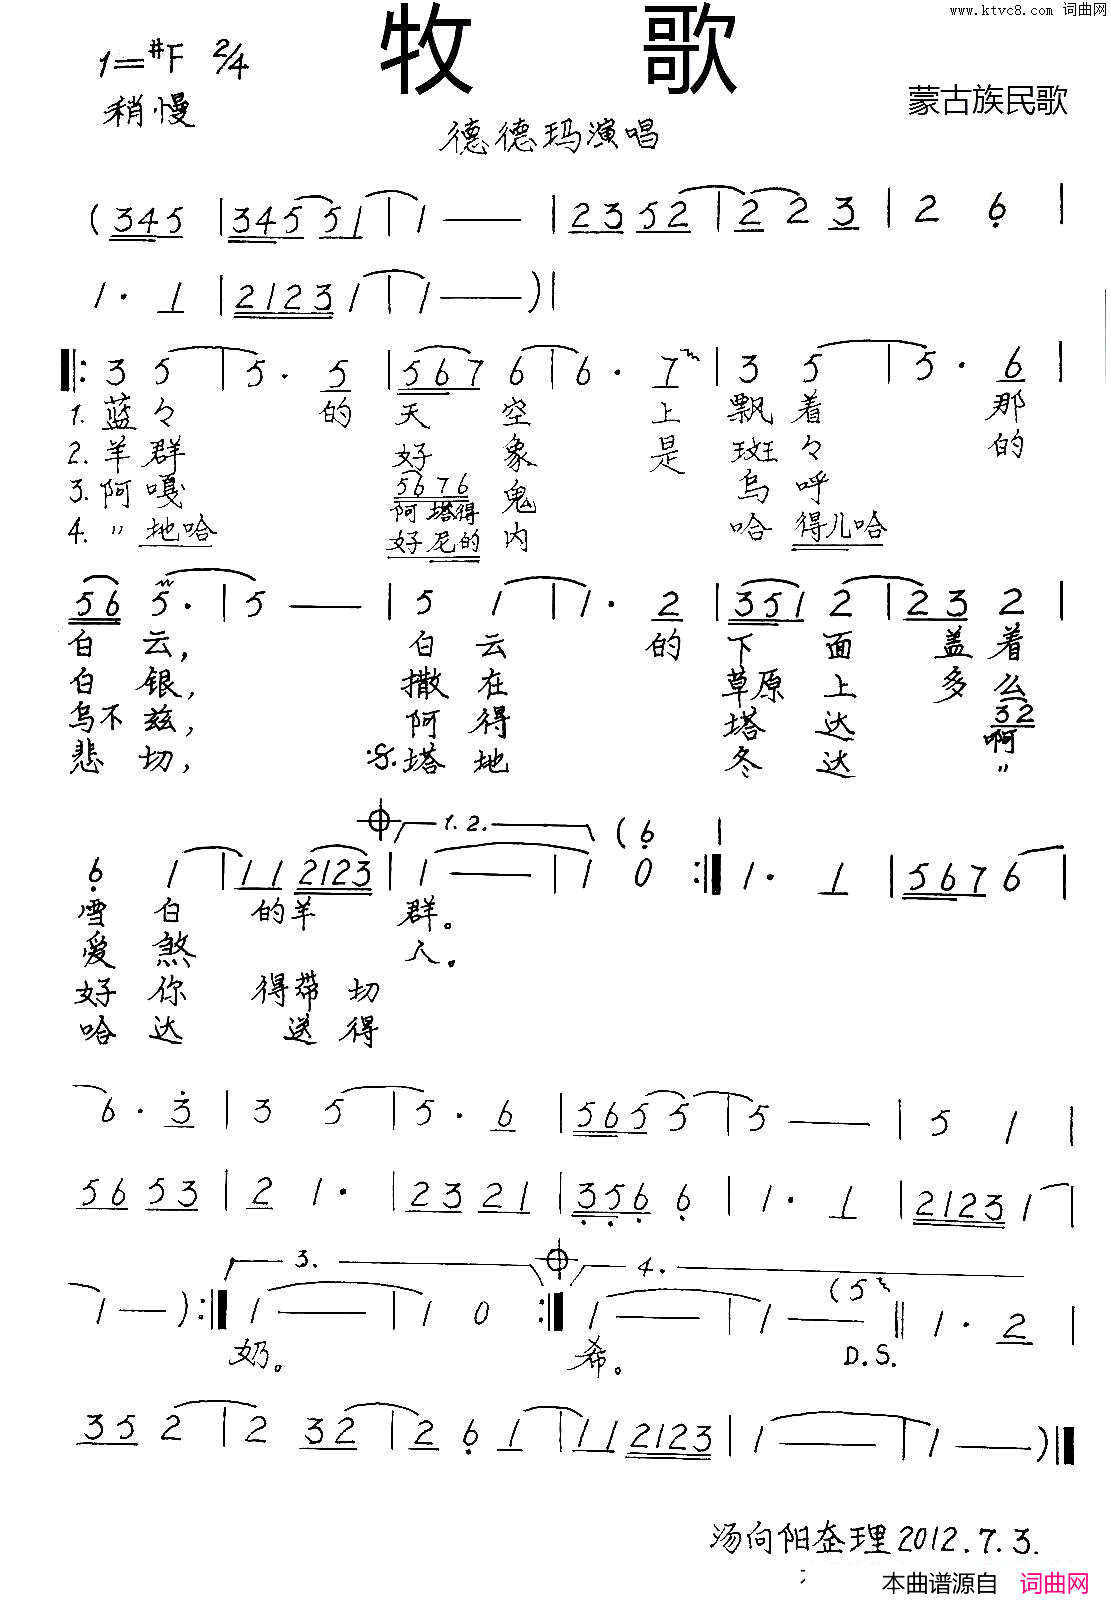 www.ktvc8.com 词曲网
牧 歌
1=#F 2/4
稍慢
蒙古族民歌
德德玛演唱
(345 |3455 51 | 1 — | 2352 | 2 2 3 | 2 6 |
1 · 1 | 2123 1 | 1 — ) |
‖: 3 5 | 5 · 5 | 567 6 | 6 · 7 | 3 5 | 5 · 6 |
1. 蓝々 的 天 空 上 飘 着 那
2. 羊群 好 象 是 斑 々 的
3. 阿嘎 5676 鬼 乌 呼
阿 塔得
4. 〃 地哈 好 尼的 内 哈 得儿哈
56 5 · | 5 — | 5 1 | 1 · 2 | 351 2 | 23 2 |
白 云, 白 云 的 下 面 盖 着
白 银, 撒 在 草原 上 多 么
乌不 兹, 阿 得 塔 达 32
啊
悲 切, :S. 塔 地 冬 达 〃
1. 2. (6 |
6 1 | 11 2123 | 1 — | 1 0 :‖ 1 · 1 | 567 6 |
雪 白 的羊 群。
爱 煞 人。
好 你 得帮 切
哈 达 送 得
6 · 3 | 3 5 | 5 · 6 | 565 5 | 5 — | 5 1 |
56 53 | 2 1 · | 23 21 | 356 6 | 1 · 1 | 2123 1 |
3. 4.
1 — ) :‖ 1 — | 1 0 :‖ 1 — | 1 — (5 ‖ 1 · 2 |
奶。 希。 D.S.
35 2 | 2 32 | 2 6 1 | 11 2123 | 1 — | 1 — ) ‖
汤向阳奎理2012.7.3.
本曲谱源自 词曲网